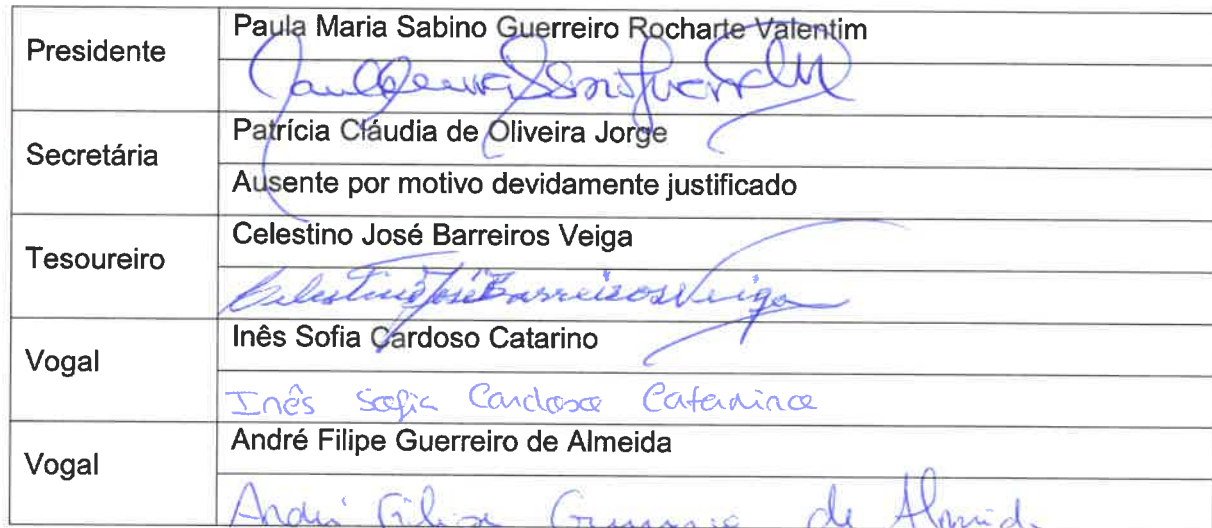 Presidente
Paula Maria Sabino Guerreiro Rocharte Valentim
Secretária
Patrícia Cláudia de Oliveira Jorge
Ausente por motivo devidamente justificado
Tesoureiro
Celestino José Barreiros Veiga
Celestino José Barreiros Veiga
Vogal
Inês Sofia Cardoso Catarino
Inês Sofia Cardoso Catarino
Vogal
André Filipe Guerreiro de Almeida
André Filipe Guerreiro de Almeida